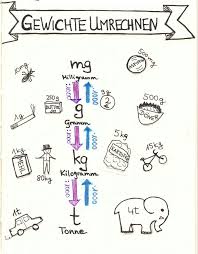 GEWICHTE UMRECHNEN
mg
Milligramm
500mg
10mg
:1000
·1000
g
Gramm
250g
2g
500g
1g
:1000
·1000
kg
Kilogramm
1kg
80kg
5kg
15kg
:1000
·1000
t
Tonne
1t
4t